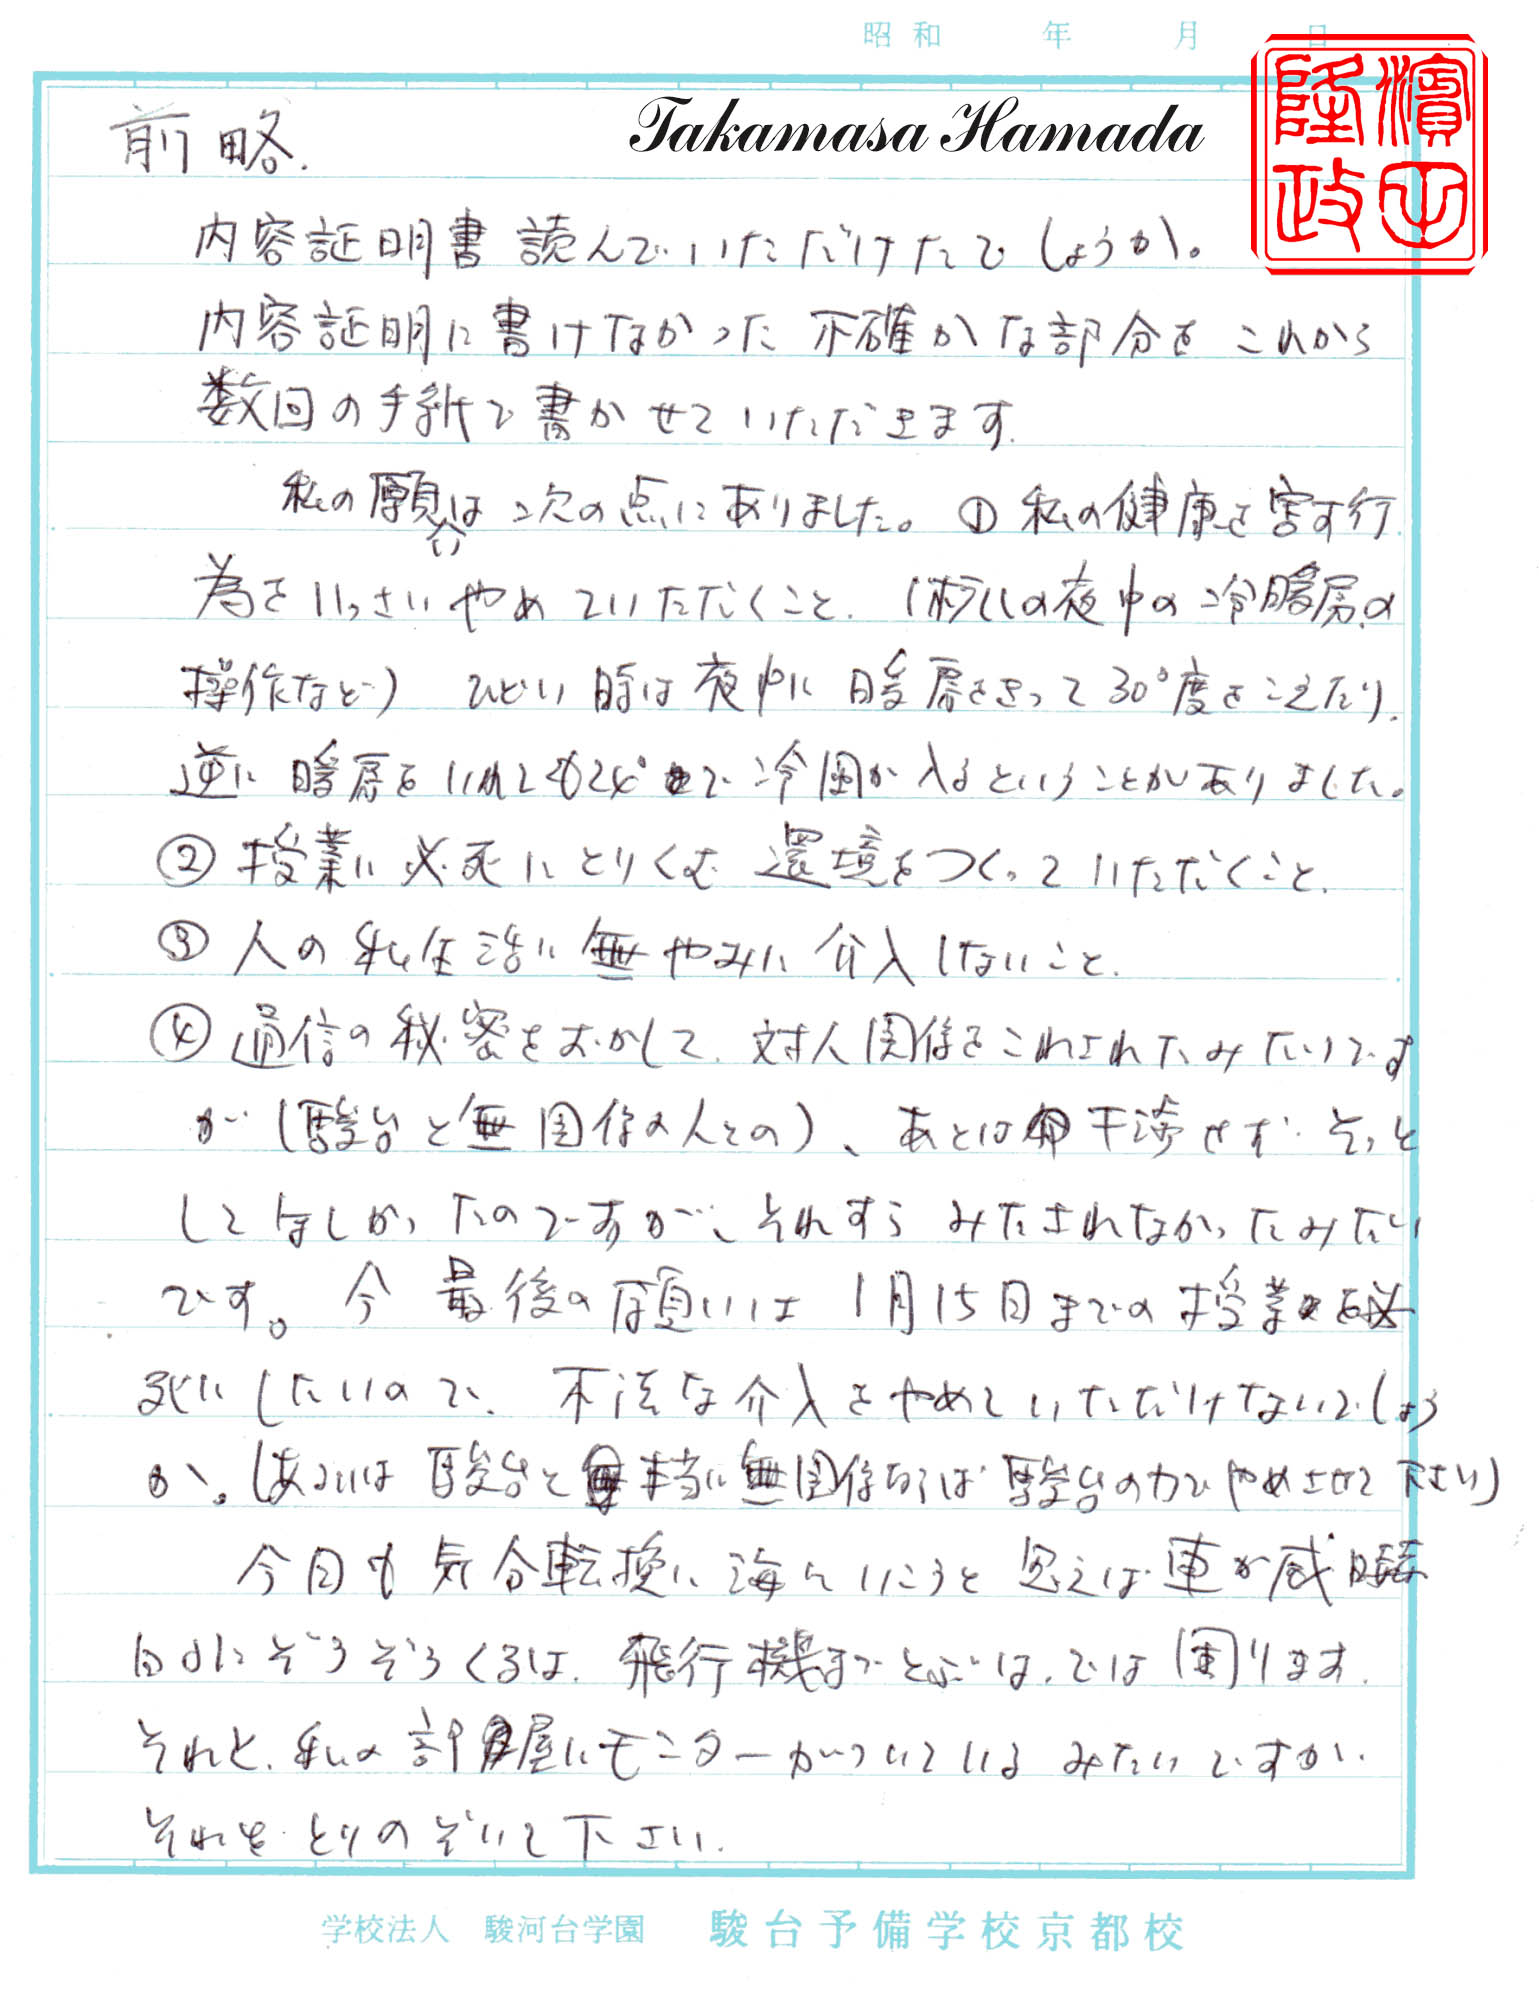 昭和　　年　　月　　日
Takamasa Hamada
濱田隆政
前略.
内容証明書読んでいただけたでしょうか。
内容証明に書けなかった不確かな部分をこれから
数回の手紙で書かせていただきます.
私の願いは次の点にありました。①私の健康を害す行
為をいっさいやめていただくこと.(ホテルの夜中の冷暖房の
操作など) ひどい時は夜中に暖房をきって30°度をこえたり.
逆に暖房をいれても24°で冷風が入るということがありました。
②授業に必死にとりくむ環境をつくっていただくこと.
③人の私生活に無やみに介入しないこと.
④通信の秘密をおかして.対人関係をこわされたみたいです
が(駿台と無関係の人との)、あとは干渉せず.そっと
してほしかったのですが、それすらみたされなかったみたい
です。今最後の願いは1月15日までの授業を必
死にしたいので、不法な介入をやめていただけないでしょう
か。(あるいは駿台と本当に無関係ならば駿台の力でやめさせて下さい)
今日も気分転換に海へいこうと思えば車が威嚇
目的にぞろぞろくるは.飛行機までとぶは.では困ります.
それと.私の部屋にモニターがついているみたいですが.
それをとりのぞいて下さい.
学校法人　駿河台学園　駿台予備学校京都校